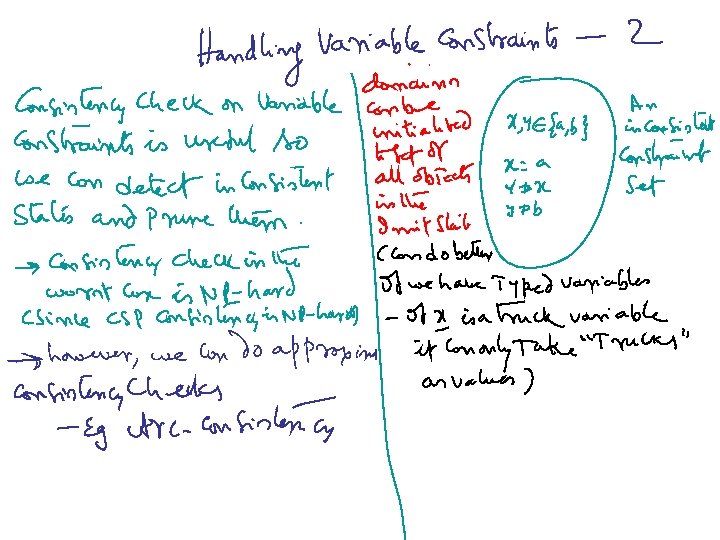 Handling Variable Constraints — 2
Consistency check on variable
constraints is useful so
we can detect inconsistent
states and prune them.
→ Consistency check in the
worst case is NP-hard
(Since CSP consistency is NP-hard)
→ however, we can do approxim
consistency checks
— Eg Arc-consistency
domains
can be
initialized
to set of
all objects
in the
Init State
(can do better
if we have Typed variables
— if x is a truck variable
it can only Take "Trucks"
as values)
x,y∈{a,b}
x=a
y≠x
y≠b
An
inconsistent
constraint
set